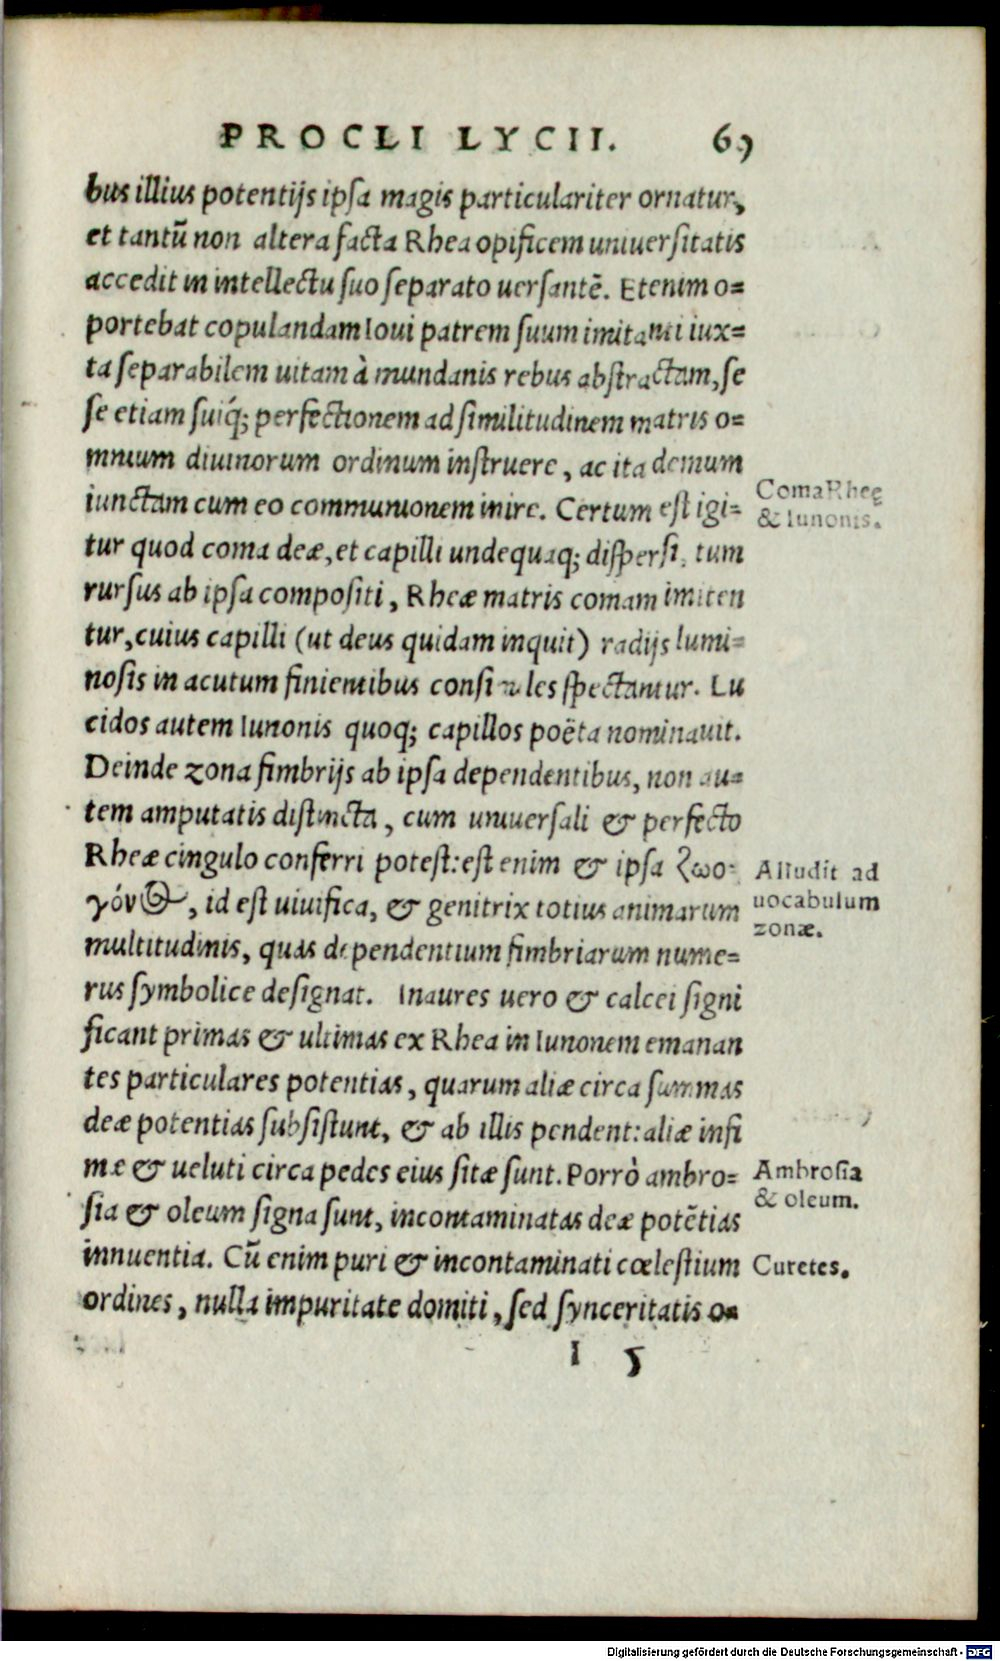 PROCLI LYCII. 69
bus illius potentijs ipsa magis particulariter ornatur,
et tantũ non altera facta Rhea opificem uniuersitatis
accedit in intellectu suo separato uersantẽ. Etenim o=
portebat copulandam Ioui patrem suum imitanti iux=
ta separabilem uitam à mundanis rebus abstractam, se
se etiam suiq́; perfectionem ad similitudinem matris o=
mnium diuinorum ordinum instruere, ac ita demum
iunctam cum eo communionem inire. Certum est igi=
Coma Rheę
& Iunonis.
tur quod coma deæ, et capilli undequaq; dispersi, tum
rursus ab ipsa compositi, Rheæ matris comam imiten
tur, cuius capilli (ut deus quidam inquit) radijs lumi=
nosis in acutum finientibus consiles spectantur. Lu
cidos autem Iunonis quoq; capillos poëta nominauit.
Deinde zona fimbrijs ab ipsa dependentibus, non au=
tem amputatis distincta, cum uniuersali & perfecto
Rheæ cingulo conferri potest: est enim & ipsa ζωο-
Alludit ad
uocabulum
zonæ.
γόνος, id est uiuifica, & genitrix totius animarum
multitudinis, quas dependentium fimbriarum nume=
rus symbolice designat. Inaures uero & calcei signi
ficant primas & ultimas ex Rhea in Iunonem emanan
tes particulares potentias, quarum aliæ circa summas
deæ potentias subsistunt, & ab illis pendent: aliæ infi
mæ & ueluti circa pedes eius sitæ sunt. Porrò ambro=
Ambrosia
& oleum.
sia & oleum signa sunt, incontaminatas deæ potẽtias
innuentia. Cũ enim puri & incontaminati cœlestium
Curetes.
ordines, nulla impuritate domiti, sed synceritatis o=
I 5
Digitalisierung gefördert durch die Deutsche Forschungsgemeinschaft - DFG